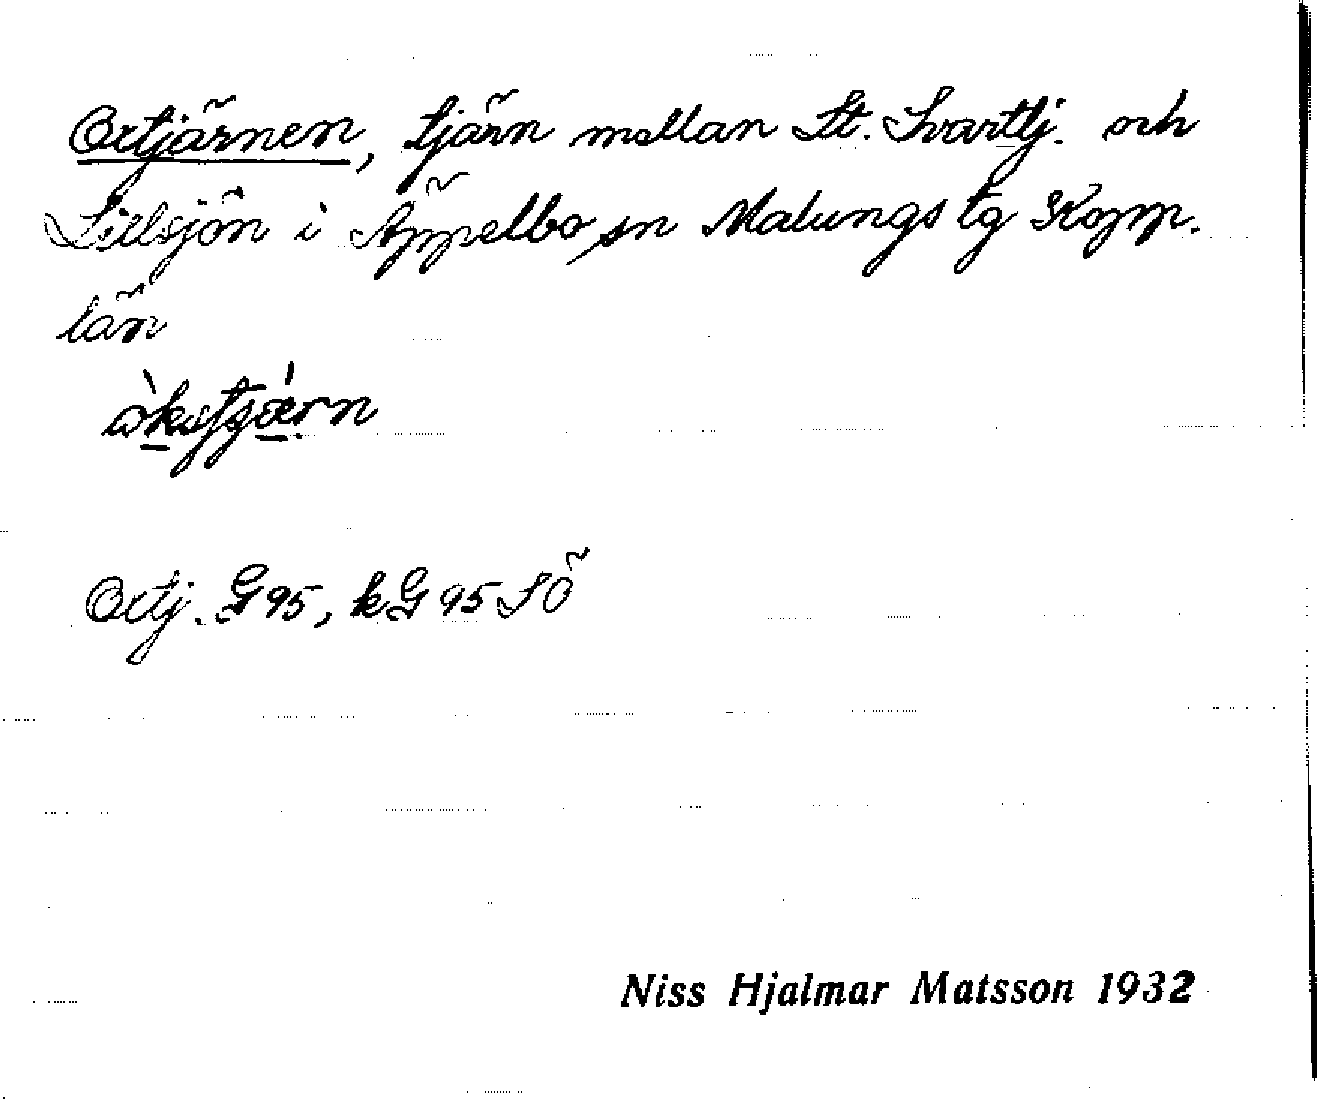 Oxtjärnen, tjärn mellan St. Svarttj. och
Lillsjön i Äppelbo sn Malungs tg Kopp.
län
òkstjǽrn
Oxtj. G95, kG95SÖ
Niss Hjalmar Matsson 1932